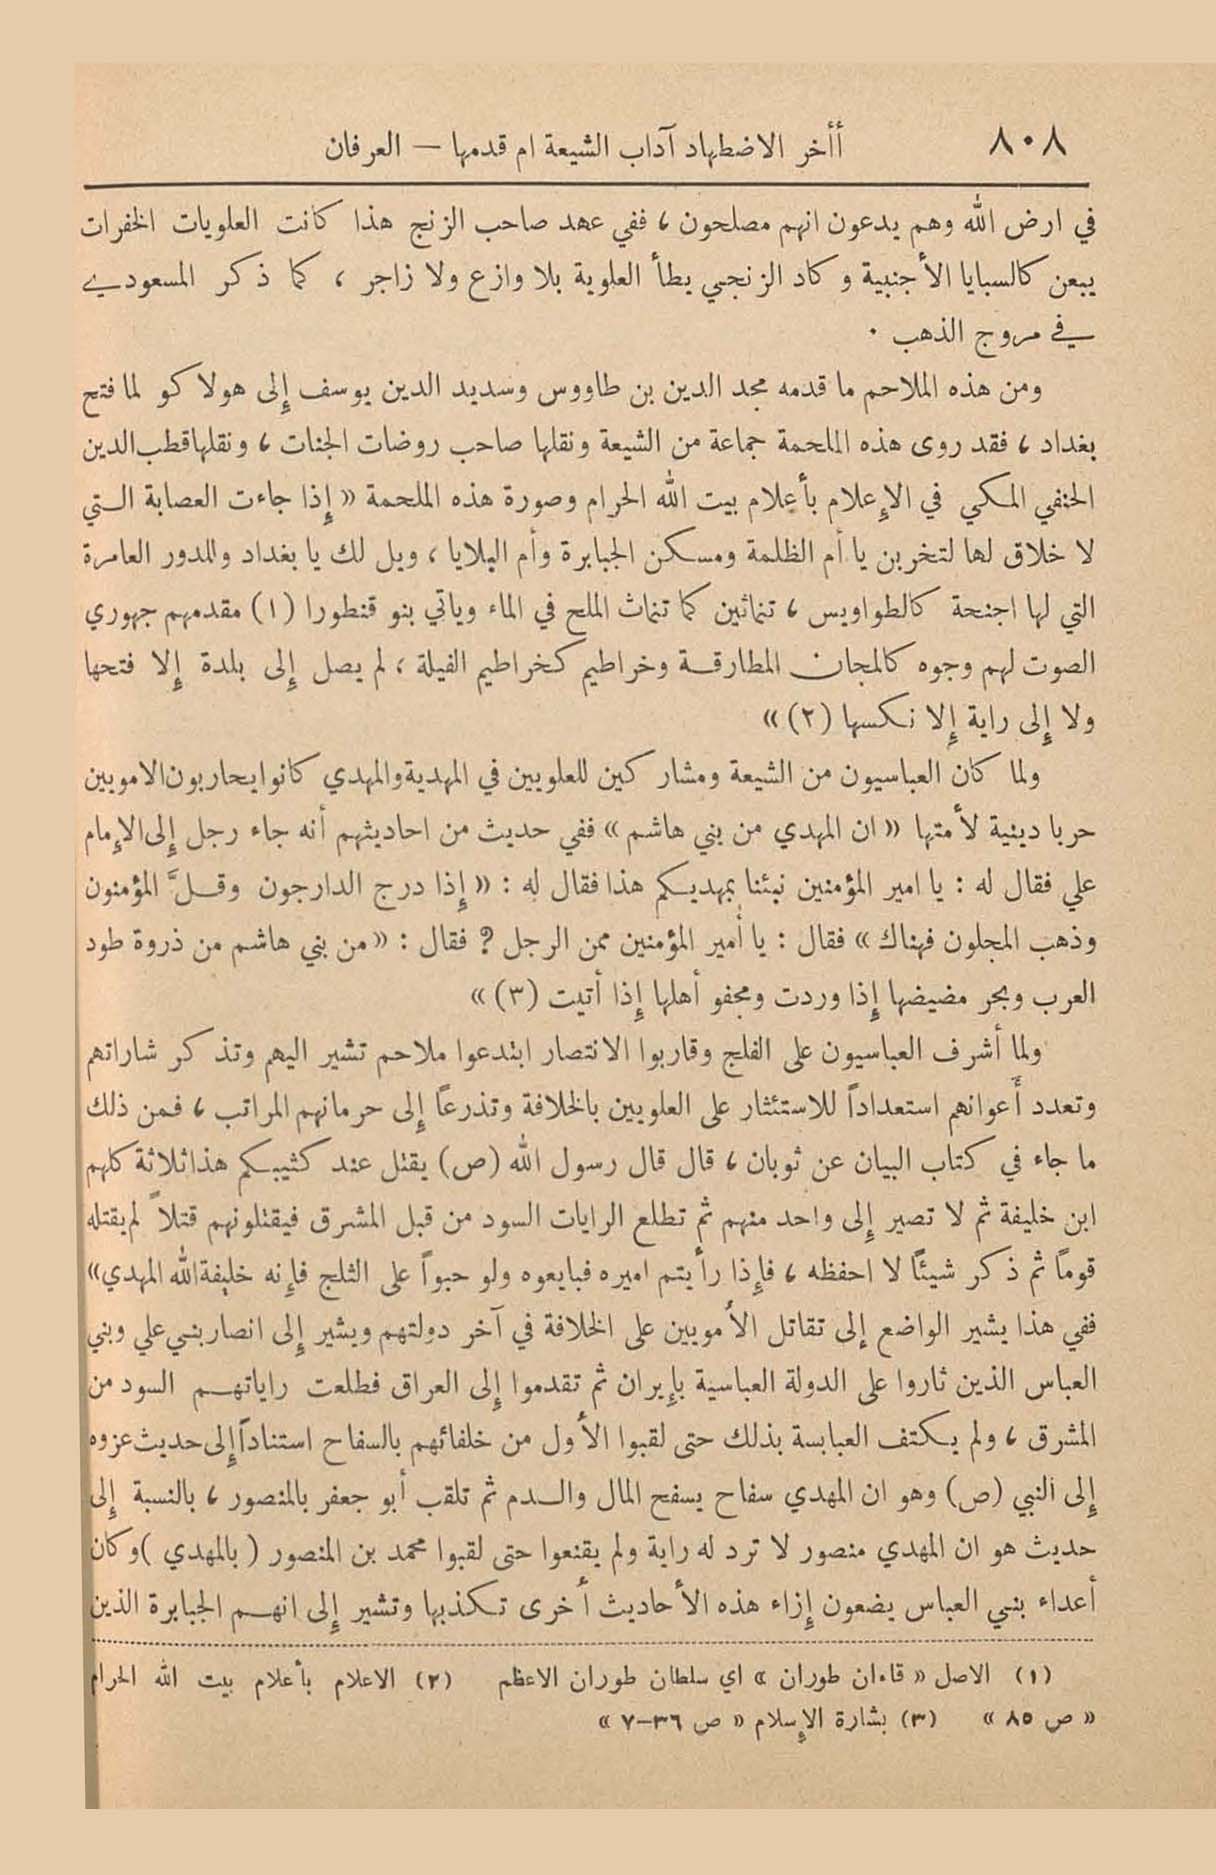 ٨٠٨
أأخر الاضطهاد آداب الشيعة ام قدمها — العرفان
في ارض الله وهم يدعون انهم مصلحون ، ففي عهد صاحب الزنج هذا كانت العلويات الخفرات
يبعن كالسبايا الأجنبية وكاد الزنجي يطأ العلوية بلا وازع ولا زاجر ، كما ذكر المسعودي
في مروج الذهب ٠
ومن هذه الملاحم ما قدمه مجد الدين بن طاووس وسديد الدين يوسف إلى هولاكو لما فتح
بغداد ، فقد روى هذه الملحمة جماعة من الشيعة ونقلها صاحب روضات الجنات ، ونقلها قطب الدين
الحنفي المكي في الإعلام بأعلام بيت الله الحرام وصورة هذه الملحمة « إذا جاءت العصابة التي
لا خلاق لها لتخربن يا أم الظلمة ومسكن الجبابرة وأم البلايا ، ويل لك يا بغداد وللدور العامرة
التي لها اجنحة كالطواويس ، تنماثين كما تنماث الملح في الماء وياتي بنو قنطورا (١) مقدمهم جهوري
الصوت لهم وجوه كالمجان المطارقة وخراطيم كخراطيم الفيلة ، لم يصل إلى بلدة إلا فتحها
ولا إلى راية إلا نكسها (٢) »
ولما كان العباسيون من الشيعة ومشاركين للعلويين في المهدية والمهدي كانوا يحاربون الامويين
حربا دينية لأمتها « ان المهدي من بني هاشم » ففي حديث من احاديثهم أنه جاء رجل إلى الإمام
علي فقال له : يا امير المؤمنين نبئنا بمهديكم هذا فقال له : « إذا درج الدارجون وقلَّ المؤمنون
وذهب المجلون فهناك » فقال : يا أمير المؤمنين ممن الرجل ؟ فقال : « من بني هاشم من ذروة طود
العرب وبحر مضيضها إذا وردت ومجفو أهلها إذا أتيت (٣) »
ولما أشرف العباسيون على الفلج وقاربوا الانتصار ابتدعوا ملاحم تشير اليهم وتذكر شاراتهم
وتعدد أعوانهم استعداداً للاستئثار على العلويين بالخلافة وتذرعاً إلى حرمانهم المراتب ، فمن ذلك
ما جاء في كتاب البيان عن ثوبان ، قال قال رسول الله (ص) يقتل عند كثيبكم هذا ثلاثة كلهم
ابن خليفة ثم لا تصير إلى واحد منهم ثم تطلع الرايات السود من قبل المشرق فيقتلونهم قتلاً لم يقتله
قوماً ثم ذكر شيئاً لا احفظه ، فإذا رأيتم اميره فبايعوه ولو حبواً على الثلج فإنه خليفة الله المهدي»
ففي هذا يشير الواضع إلى تقاتل الأمويين على الخلافة في آخر دولتهم ويشير إلى انصار بني علي وبني
العباس الذين ثاروا على الدولة العباسية بإيران ثم تقدموا إلى العراق فطلعت راياتهم السود من
المشرق ، ولم يكتف العبابسة بذلك حتى لقبوا الأول من خلفائهم بالسفاح استناداً إلى حديث عزوه
إلى النبي (ص) وهو ان المهدي سفاح يسفح المال والدم ثم تلقب أبو جعفر بالمنصور ، بالنسبة إلى
حديث هو ان المهدي منصور لا ترد له راية ولم يقنعوا حتى لقبوا محمد بن المنصور ( بالمهدي ) وكان
أعداء بني العباس يضعون إزاء هذه الأحاديث أخرى تكذبها وتشير إلى انهم الجبابرة الذين
(١) الاصل « قاءان طوران » اي سلطان طوران الاعظم (٢) الاعلام بأعلام بيت الله الحرام
« ص ٨٥ » (٣) بشارة الإسلام « ص ٣٦—٧ »